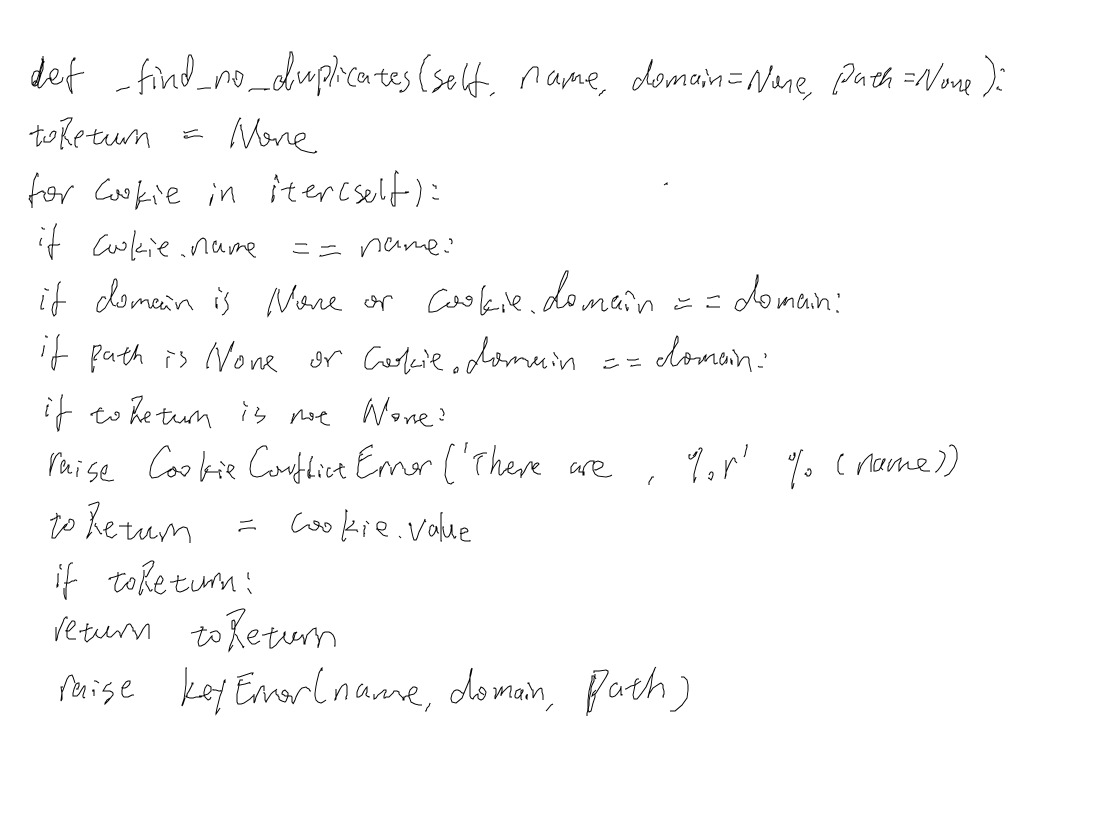 def _find_no_duplicates(self, name, domain=None, path=None):
toReturn = None
for cookie in iter(self):
if cookie.name == name:
if domain is None or cookie.domain == domain:
if path is None or cookie.domain == domain:
if toReturn is not None:
raise CookieConflictError('There are , %r' % (name))
toReturn = cookie.value
if toReturn:
return toReturn
raise keyError(name, domain, path)